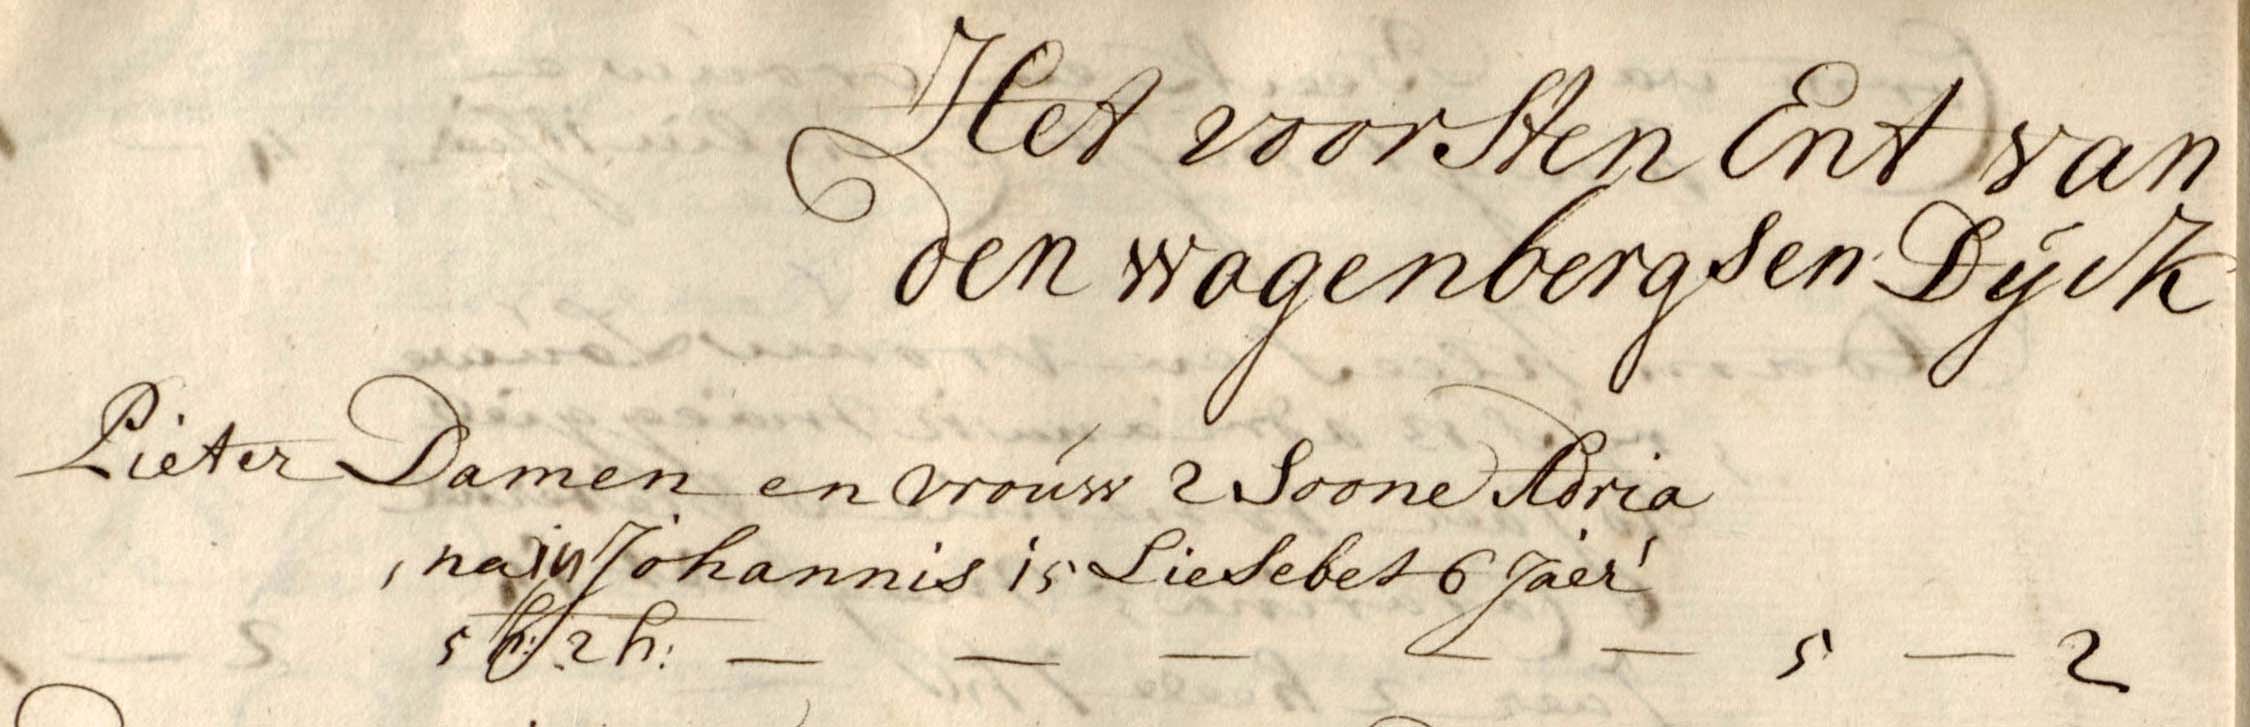 Het voorsten Ent van
den wagenbergsen Dijck
Pieter Damen en vrouw 2 Soone Adria
na in Johannis 15 Liesebet 6 Jaer
5 h: 2 h: — — — — — 5 — 2